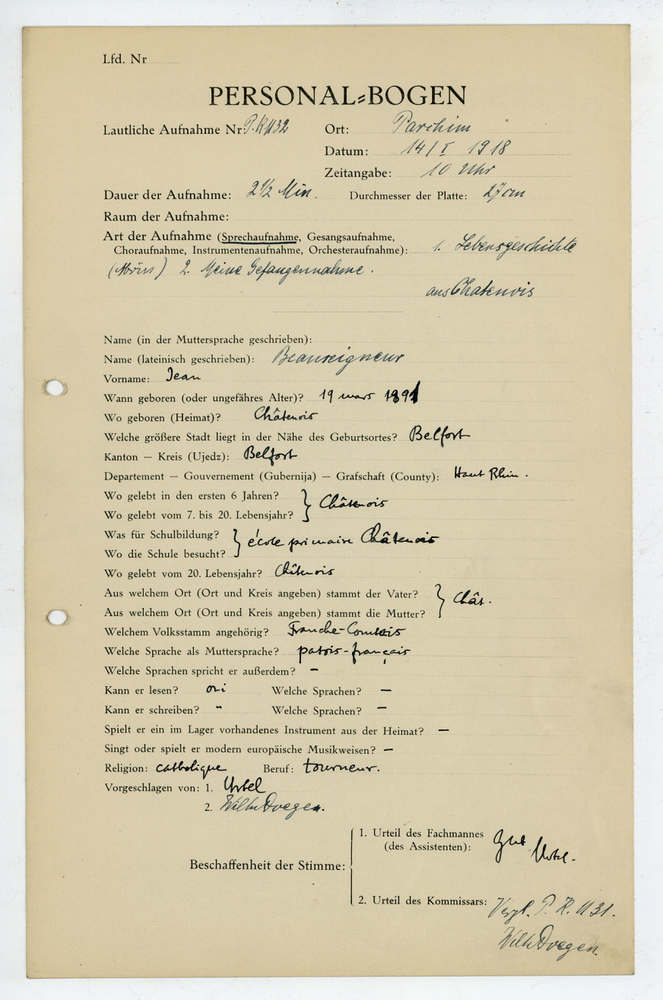 Lfd. Nr
PERSONAL=BOGEN
Lautliche Aufnahme Nr: P.K 1132 Ort: Parchim
Datum: 14/I 1918
Zeitangabe: 10 Uhr
Dauer der Aufnahme: 2½ Min. Durchmesser der Platte: 27cm
Raum der Aufnahme:
Art der Aufnahme (Sprechaufnahme, Gesangsaufnahme,
Choraufnahme, Instrumentenaufnahme, Orchesteraufnahme): 1. Lebensgeschichte
(Abriss) 2. Meine Gefangennahme.
aus Chatenois
Name (in der Muttersprache geschrieben):
Name (lateinisch geschrieben): Beauseigneur
Vorname: Jean
Wann geboren (oder ungefähres Alter)? 19 mars 1891
Wo geboren (Heimat)? Châtenois
Welche größere Stadt liegt in der Nähe des Geburtsortes? Belfort
Kanton — Kreis (Ujedz): Belfort
Departement — Gouvernement (Gubernija) — Grafschaft (County): Haut Rhin.
Wo gelebt in den ersten 6 Jahren?
Wo gelebt vom 7. bis 20. Lebensjahr? } Châtenois
Was für Schulbildung?
Wo die Schule besucht? } école primaire Châtenois
Wo gelebt vom 20. Lebensjahr? Châtenois
Aus welchem Ort (Ort und Kreis angeben) stammt der Vater?
Aus welchem Ort (Ort und Kreis angeben) stammt die Mutter? } Chât.
Welchem Volksstamm angehörig? Franche-Comtois
Welche Sprache als Muttersprache? patois-français
Welche Sprachen spricht er außerdem? —
Kann er lesen? oui Welche Sprachen? —
Kann er schreiben? " Welche Sprachen? —
Spielt er ein im Lager vorhandenes Instrument aus der Heimat? —
Singt oder spielt er modern europäische Musikweisen? —
Religion: catholique Beruf: tourneur.
Vorgeschlagen von: 1. Urtel
2. Wilh. Doegen.
1. Urteil des Fachmannes
(des Assistenten): gut Urtel.
Beschaffenheit der Stimme:
2. Urteil des Kommissars: Vergl. P. K. 1131.
Wilh. Doegen